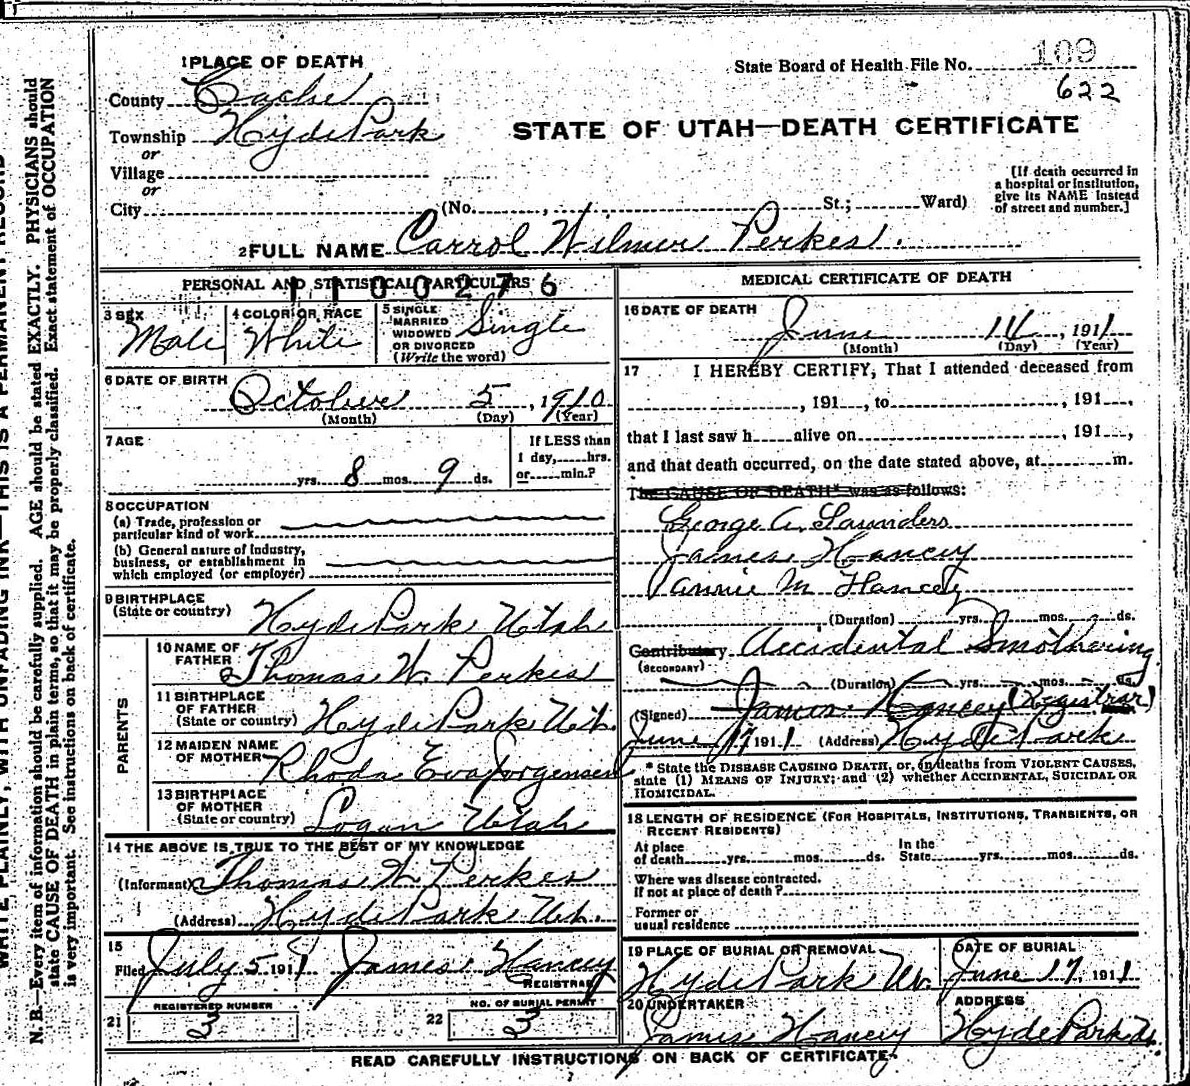 1 PLACE OF DEATH
State Board of Health File No. 109
622
County Cache
Township Hyde Park
or
Village
or
City (No. , St.; Ward)
STATE OF UTAH—DEATH CERTIFICATE
[If death occurred in
a hospital or institution,
give its NAME instead
of street and number.]
2 FULL NAME Carrol Wilmer Perkes.
PERSONAL AND STATISTICAL PARTICULARS
1100276
3 SEX
Male
4 COLOR OR RACE
White
5 SINGLE
MARRIED
WIDOWED
OR DIVORCED
(Write the word)
Single
6 DATE OF BIRTH
October 5, 1910
(Month) (Day) (Year)
7 AGE
yrs. 8 mos. 9 ds.
If LESS than
1 day, hrs.
or min.?
8 OCCUPATION
(a) Trade, profession or
particular kind of work
(b) General nature of industry,
business, or establishment in
which employed (or employer)
9 BIRTHPLACE
(State or country) Hyde Park Utah
PARENTS
10 NAME OF
FATHER Thomas W. Perkes
11 BIRTHPLACE
OF FATHER
(State or country) Hyde Park Ut.
12 MAIDEN NAME
OF MOTHER Rhoda Eva Jorgensen
13 BIRTHPLACE
OF MOTHER
(State or country) Logan Utah
14 THE ABOVE IS TRUE TO THE BEST OF MY KNOWLEDGE
(Informant) Thomas W. Perkes
(Address) Hyde Park Ut.
15
Filed July 5 1911 James Hancey
REGISTRAR
REGISTERED NUMBER
21 3
NO. OF BURIAL PERMIT
22 3
MEDICAL CERTIFICATE OF DEATH
16 DATE OF DEATH
June 14, 1911
(Month) (Day) (Year)
17 I HEREBY CERTIFY, That I attended deceased from
, 191 , to , 191 ,
that I last saw h alive on , 191 ,
and that death occurred, on the date stated above, at m.
The CAUSE OF DEATH* was as follows:
George A. Saunders
James Hancey
Annie M Hancey
(Duration) yrs. mos. ds.
Contributory Accidental Smothering
(SECONDARY)
(Duration) yrs. mos. ds.
(Signed) James Hancey (Registrar)
June 17, 1911 (Address) Hyde Park
* State the DISEASE CAUSING DEATH, or, in deaths from VIOLENT CAUSES,
state (1) MEANS OF INJURY; and (2) whether ACCIDENTAL, SUICIDAL OR
HOMICIDAL.
18 LENGTH OF RESIDENCE (FOR HOSPITALS, INSTITUTIONS, TRANSIENTS, OR
RECENT RESIDENTS)
At place
of death yrs. mos. ds.
In the
State yrs. mos. ds.
Where was disease contracted.
If not at place of death?
Former or
usual residence
19 PLACE OF BURIAL OR REMOVAL
Hyde Park Ut.
DATE OF BURIAL
June 17, 1911
20 UNDERTAKER
James Hancey
ADDRESS
Hyde Park Ut.
READ CAREFULLY INSTRUCTIONS ON BACK OF CERTIFICATE
WRITE PLAINLY, WITH UNFADING INK—THIS IS A PERMANENT RECORD
N. B.—Every item of information should be carefully supplied. AGE should be stated EXACTLY. PHYSICIANS should
state CAUSE OF DEATH in plain terms, so that it may be properly classified. Exact statement of OCCUPATION
is very important. See instructions on back of certificate.